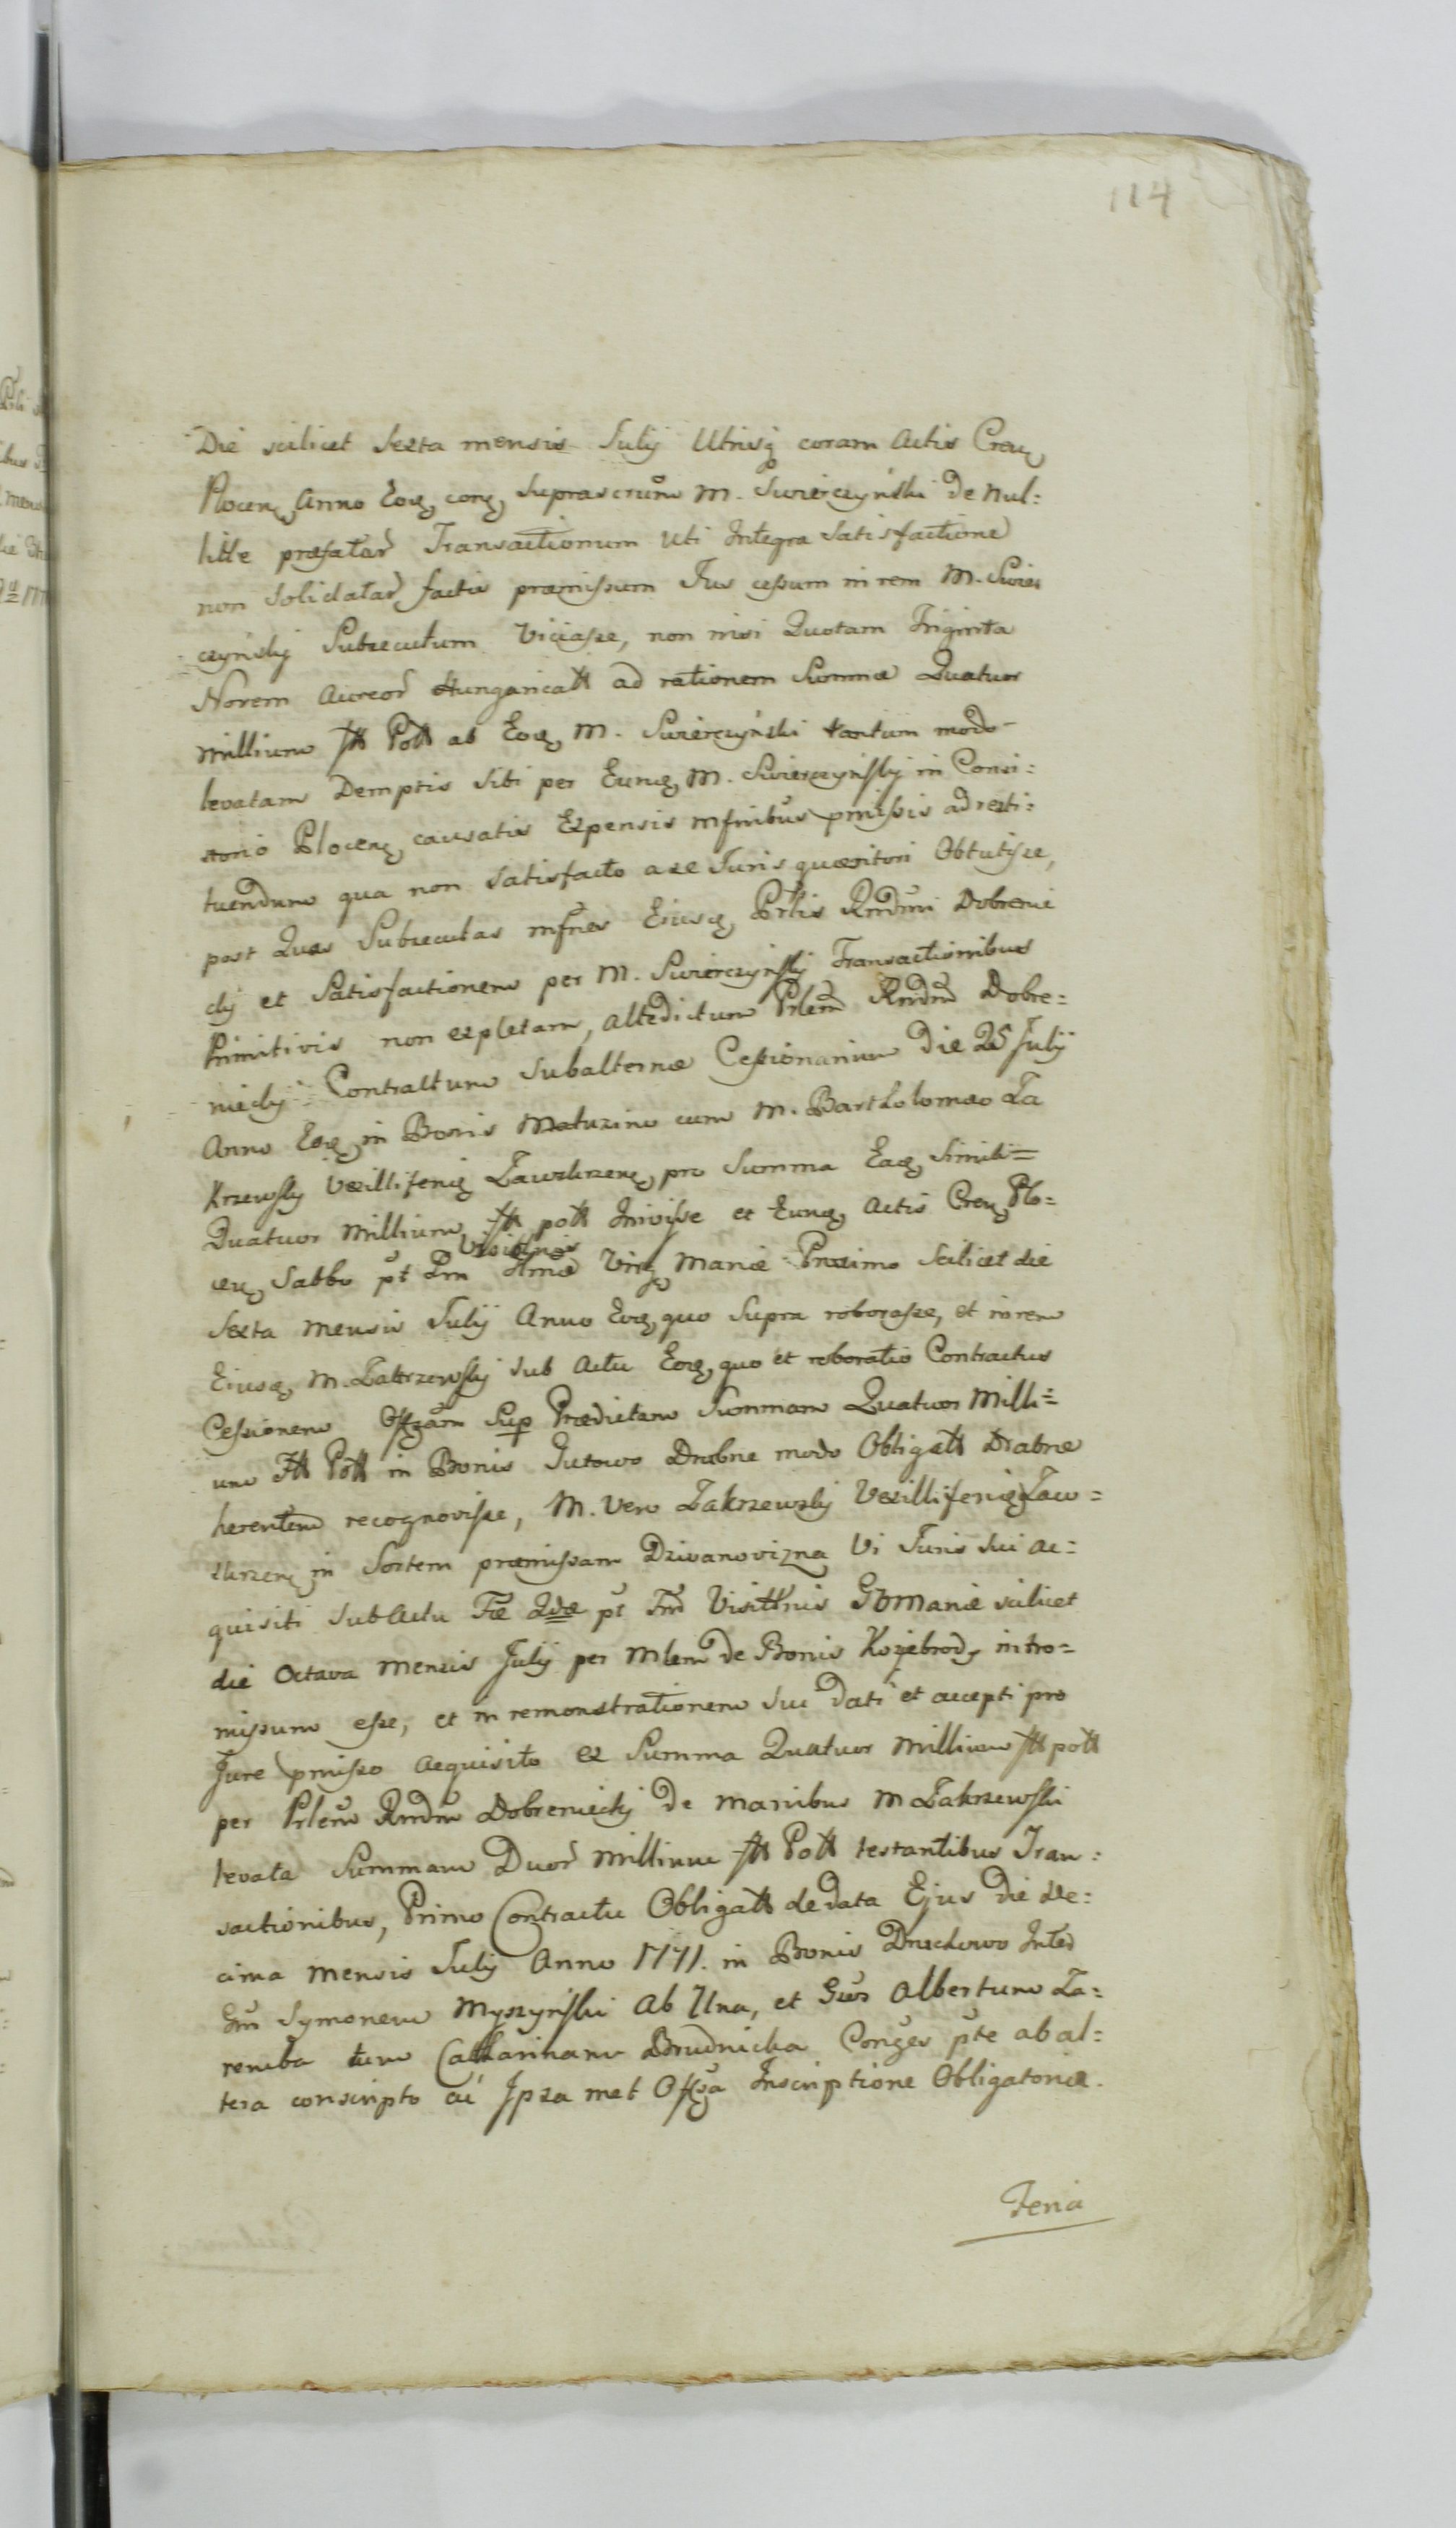 114
Die scilicet Sexta mensis Julij Utrisq coram Actis Cren
Plocen Anno Eoq conq Suprascrum M. Swierczyński de Nul:
litte præfatar Transactionum uti Integra Satisfactione
non Solidatar factis præmissum Jus cessum in rem M. Swier
czyńskij Subsecutum Viciasse, non nisi Quotam Triginta
Novem Aureor Hungaricall ad rationem Summæ Quatuor
Millium fll Poll ab Eoq M. Swierczyński tantum modo
levatam Demptis Sibi per Eunq M. Swierczyńskij in Consi:
storio Plocen causatis Expensis mfnibus pmissis ad resti:
tuendum qua non Satisfacto aže Juris quæsitori Obtulisse,
post Quas Subsecutas mfnes Eiusq Prlis Rndmi Dobrenie
cij et Satisfactionem per M. Swierczyńskij Transactionibus
Primitivis non expletam, altedictum Prlem Rndm Dobre:
niecky Contractum Subalternæ Cessionarium die 25 Julij
Anno Eoq in Bonis Maturino cum M. Bartholomæo Za
Krzewskij Vexilliferiq Zawskrzenq pro Summa Eaq Simili
Quatuor Millium fll poll Inivisse et Eunq Actis Cren Plo:
cen Sabbo pt Fm Visittnis Virg Mariæ Proximo Scilicet die
Sexta Mensis Julij Anno Eoq quo Supra roborasse, et in rem
Eiusq M. Zakrzewskij Sub Actu Eoq quo et roboratio Contractus
Cessionem Sup Prædictam Summam Quatuor Milli:
um Fll Poll in Bonis Jutowo Drabne modo Obligall Drabne
herentem recognovisse, M. Vero Zakrzewskij Vexilliferiq Zaw:
skrzen in Sortem præmissam Dzivanovizna Vi Juris Sui ac:
quisiti Sub Actu Fæ 2dæ pt Fm Visittnis Mariæ scilicet
die Octava Mensis Julij per Mlem de Bonis Kozjebrody intro:
missum esse, et in remonstrationem Sui dati et accepti pro
Jure pmisso Acquisito ex Summa Quatuor Millium fll poll
per Prlem Rndm Dobreniecky de Manibus M Zakrzewski
levata Summam Duor Millium fll Poll testantibus Tran:
sactionibus, Primo Contractu Obligall de data Ejus die de:
cima Mensis Julij Anno 1771. in Bonis Drochowo Inter
Gm Symonem Myszyński Ab Una, et Gros Albertum Za:
remba tum Catharinam Brudnicka Conges pte ab al:
tera conscripto ac Ipsa met Inscriptione Obligatoria.
Feria